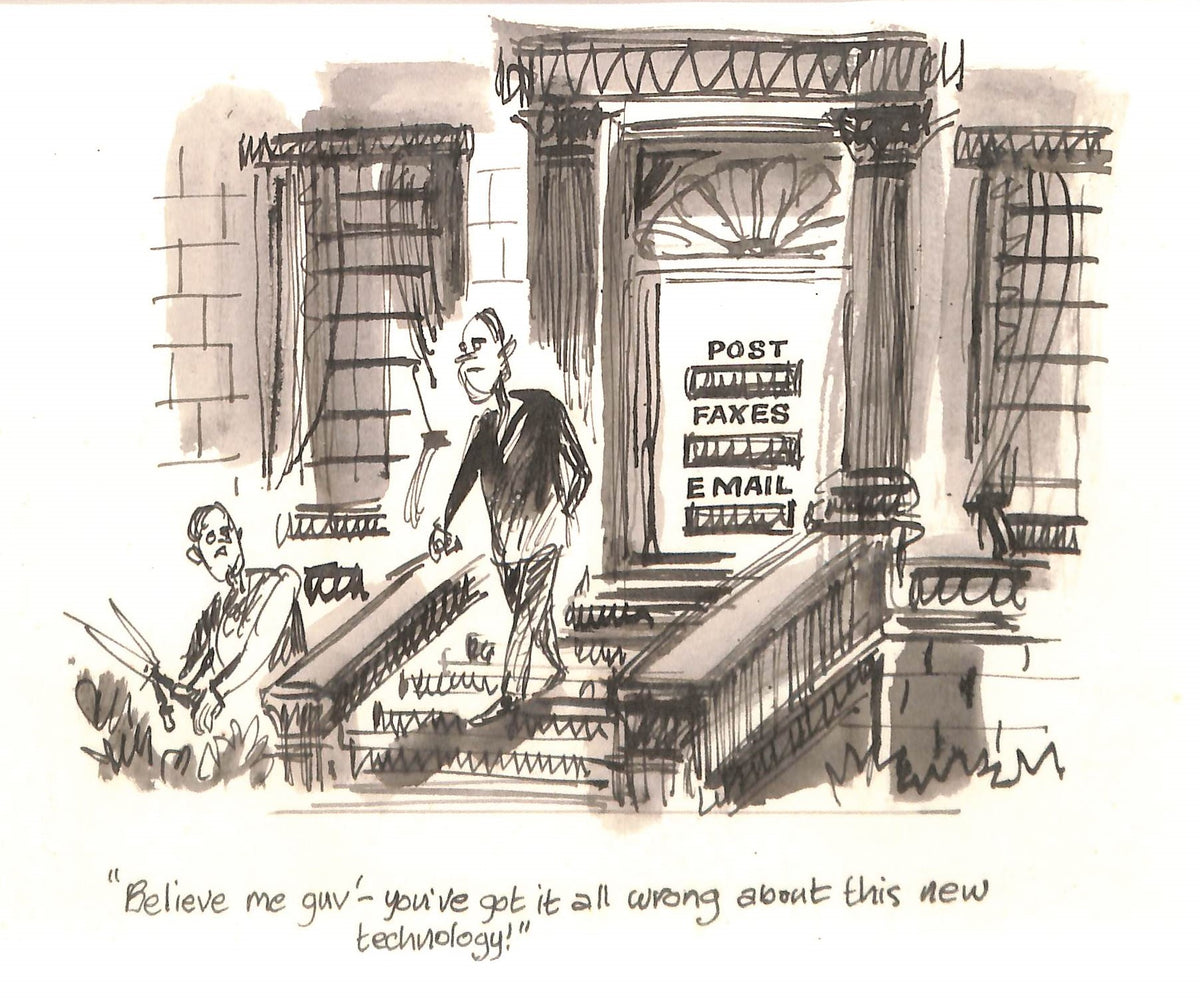 POST
FAXES
EMAIL
"Believe me guv'- you've got it all wrong about this new
technology!"